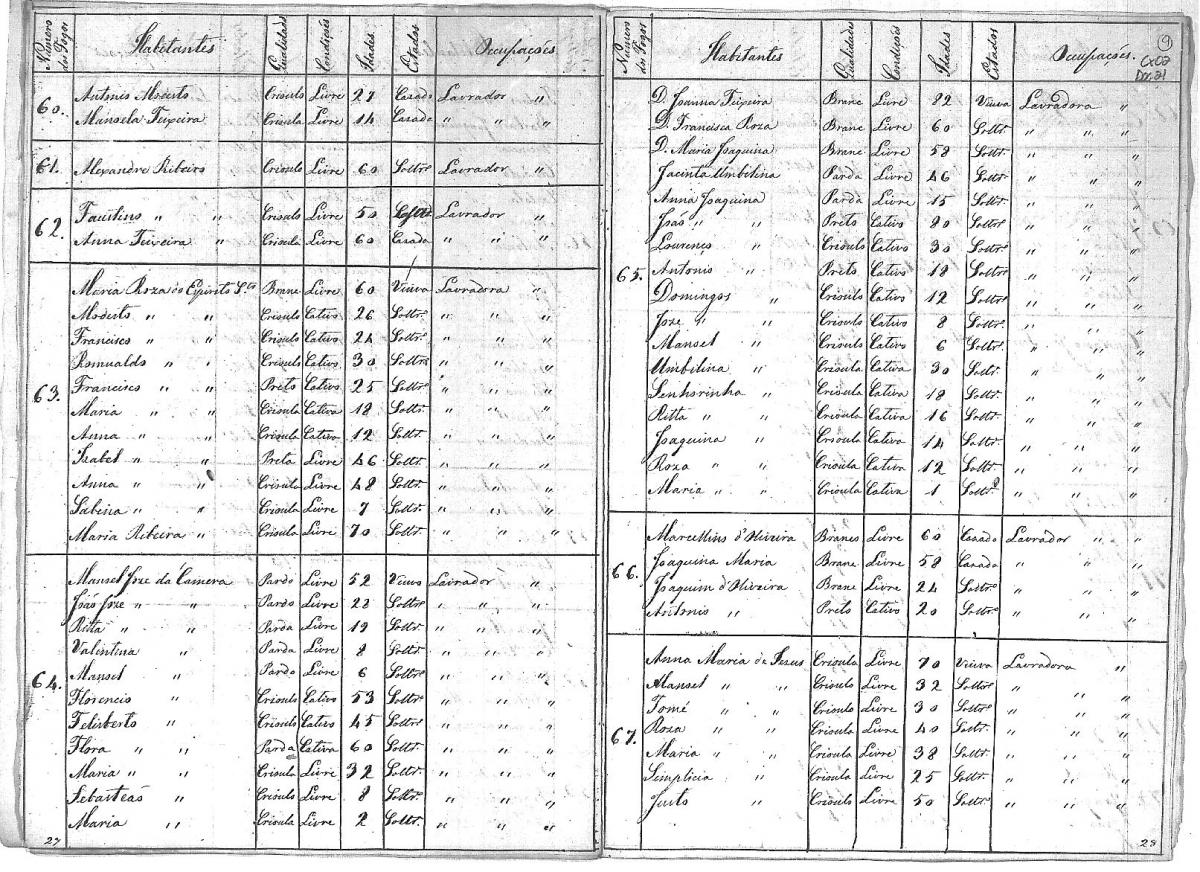 Número dos Fogos Habitantes Qualidades Condições Idades Estados Occupações
60. Antonio Modesto Crioulo Livre 27 Casado Lavrador "
Manoela Teixeira Crioula Livre 14 Casada " " "
61. Alexandre Ribeiro Crioulo Livre 60 Soltro Lavrador "
62. Faustino " " Crioulo Livre 50 Lavrador "
Anna Teixeira " Crioula Livre 60 Casada " " "
63. Maria Roza do Espirito Sto Branc Livre 60 Viuva Lavradora "
Modesto " " Crioulo Cativo 26 Soltro " " "
Francisco " " Crioulo Cativo 24 Soltro " " "
Romualdo " " Crioulo Cativo 30 Soltro " " "
Francisco " " Preto Cativo 25 Soltro " " "
Maria " " Crioula Cativa 18 Soltr. " " "
Anna " " Crioula Cativa 12 Soltr. " " "
Izabel " " Preta Livre 46 Soltr. " " "
Anna " " Crioula Livre 48 Soltr. " " "
Sabina " " Crioula Livre 7 Soltr. " " "
Maria Ribeira " Crioula Livre 70 Soltr. " " "
64. Manoel Joze da Camera Pardo Livre 52 Viuvo Lavrador "
João Joze " " Pardo Livre 22 Soltro " " "
Ritta " " Parda Livre 19 Soltr. " " "
Valentina " Parda Livre 8 Soltr. " " "
Manoel " Pardo Livre 6 Soltro " " "
Florencio Crioulo Cativo 53 Soltro " " "
Felisberto " Crioulo Cativo 45 Soltro " " "
Flora " " Parda Cativa 60 Soltr. " " "
Maria " " Crioula Livre 32 Soltr. " " "
Sebasteão " Crioulo Livre 8 Soltro " " "
Maria " Crioula Livre 2 Soltr. " " "
27
9
Cx02
Doc.21
Número dos Fogos Habitantes Qualidades Condições Idades Estados Occupações.
D. Joanna Teixeira Branc Livre 82 Viuva Lavradora "
D. Francisca Roza Branc Livre 60 Soltr. " " "
D. Maria Joaquina Branc Livre 58 Soltr. " " "
Jacinta Umbilina Parda Livre 46 Soltr. " " "
Anna Joaquina Parda Livre 15 Soltr. " " "
João " " Preto Cativo 80 Soltro " " "
Lourenço " Crioulo Cativo 30 Soltro " " "
65. Antonio " Preto Cativo 18 Soltro " " "
Domingos " Crioulo Cativo 12 Soltro " " "
Joze " " Crioulo Cativo 8 Soltro " " "
Manoel " Crioulo Cativo 6 Soltro " " "
Umbilina " Crioula Cativa 30 Soltr. " " "
Senhorinha " Crioula Cativa 18 Soltr. " " "
Ritta " " Crioula Cativa 16 Soltr. " " "
Joaquina " Crioula Cativa 14 Soltr. " " "
Roza " " Crioula Cativa 12 Soltr. " " "
Maria " " Crioula Cativa 1 Soltr. " " "
66. Marcellino d'Oliveira Branco Livre 60 Casado Lavrador " "
Joaquina Maria Branc Livre 58 Casada " " "
Joaquim d'Oliveira Branc Livre 24 Soltro " " "
Antonio " Preto Cativo 20 Soltro " " "
67. Anna Maria de Jesus Crioula Livre 70 Viuva Lavradora "
Manoel " " Crioulo Livre 32 Soltro " " "
Tomé " " Crioulo Livre 30 Soltro " " "
Roza " " Crioula Livre 40 Soltr. " " "
Maria " " Crioula Livre 38 Soltr. " " "
Simplicia " Crioula Livre 25 Soltr. " " "
Justo " Crioulo Livre 50 Soltro " " "
28